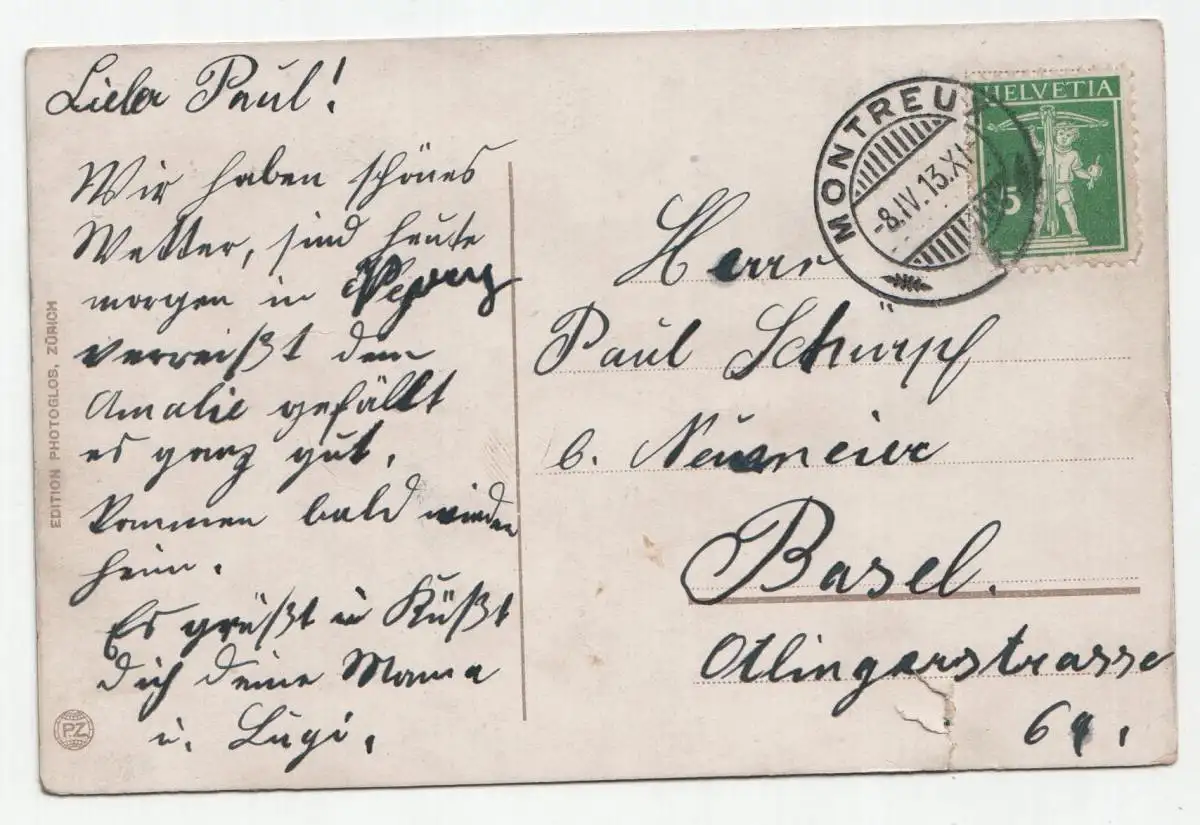 Lieber Paul!
Wir haben schönes
Wetter, sind heute
morgen in
verreißt dem
Amalie gefällt
es ganz gut.
kommen bald wieder
heim.
Es grüßt u Küßt
dich deine Mama
u. Lugi.
EDITION PHOTOGLOS, ZÜRICH
P.Z.
MONTREUX
-8.IV.13.XI-
HELVETIA
5
Herrn
Paul Schurpf
b. Neumeier
Basel.
Otlingerstrasse